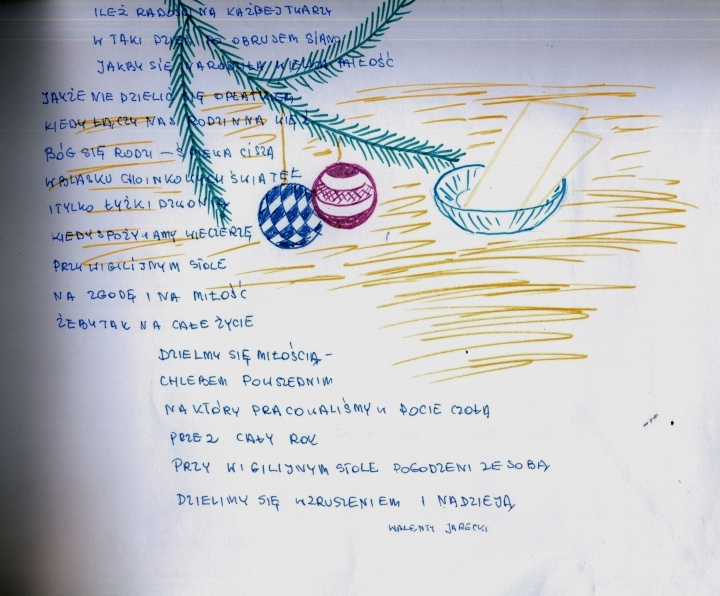 ILEŻ RADOŚCI NA KAŻDEJ TWARZY
W TAKI DZIEŃ POD OBRUSEM SIANO
JAKBY SIĘ NARODZIŁA WIELKA MIŁOŚĆ
JAKŻE NIE DZIELIĆ SIĘ OPŁATKIEM
KIEDY ŁĄCZY NAS RODZINNA WIĘŹ
BÓG SIĘ RODZI – CISZA
W BLASKU CHOINKOWYCH ŚWIATEŁ
I TYLKO ŁYŻKI DZWONIĄ
KIEDY SPOŻYWAMY WIECZERZĘ
PRZY WIGILIJNYM STOLE
NA ZGODĘ I NA MIŁOŚĆ
ŻEBY TAK NA CAŁE ŻYCIE
DZIELMY SIĘ MIŁOŚCIĄ –
CHLEBEM POWSZEDNIM
NA KTÓRY PRACOWALIŚMY W POCIE CZOŁA
PRZEZ CAŁY ROK
PRZY WIGILIJNYM STOLE POGODZENI ZE SOBĄ
DZIELIMY SIĘ WZRUSZENIEM I NADZIEJĄ
WALENTY JARECKI